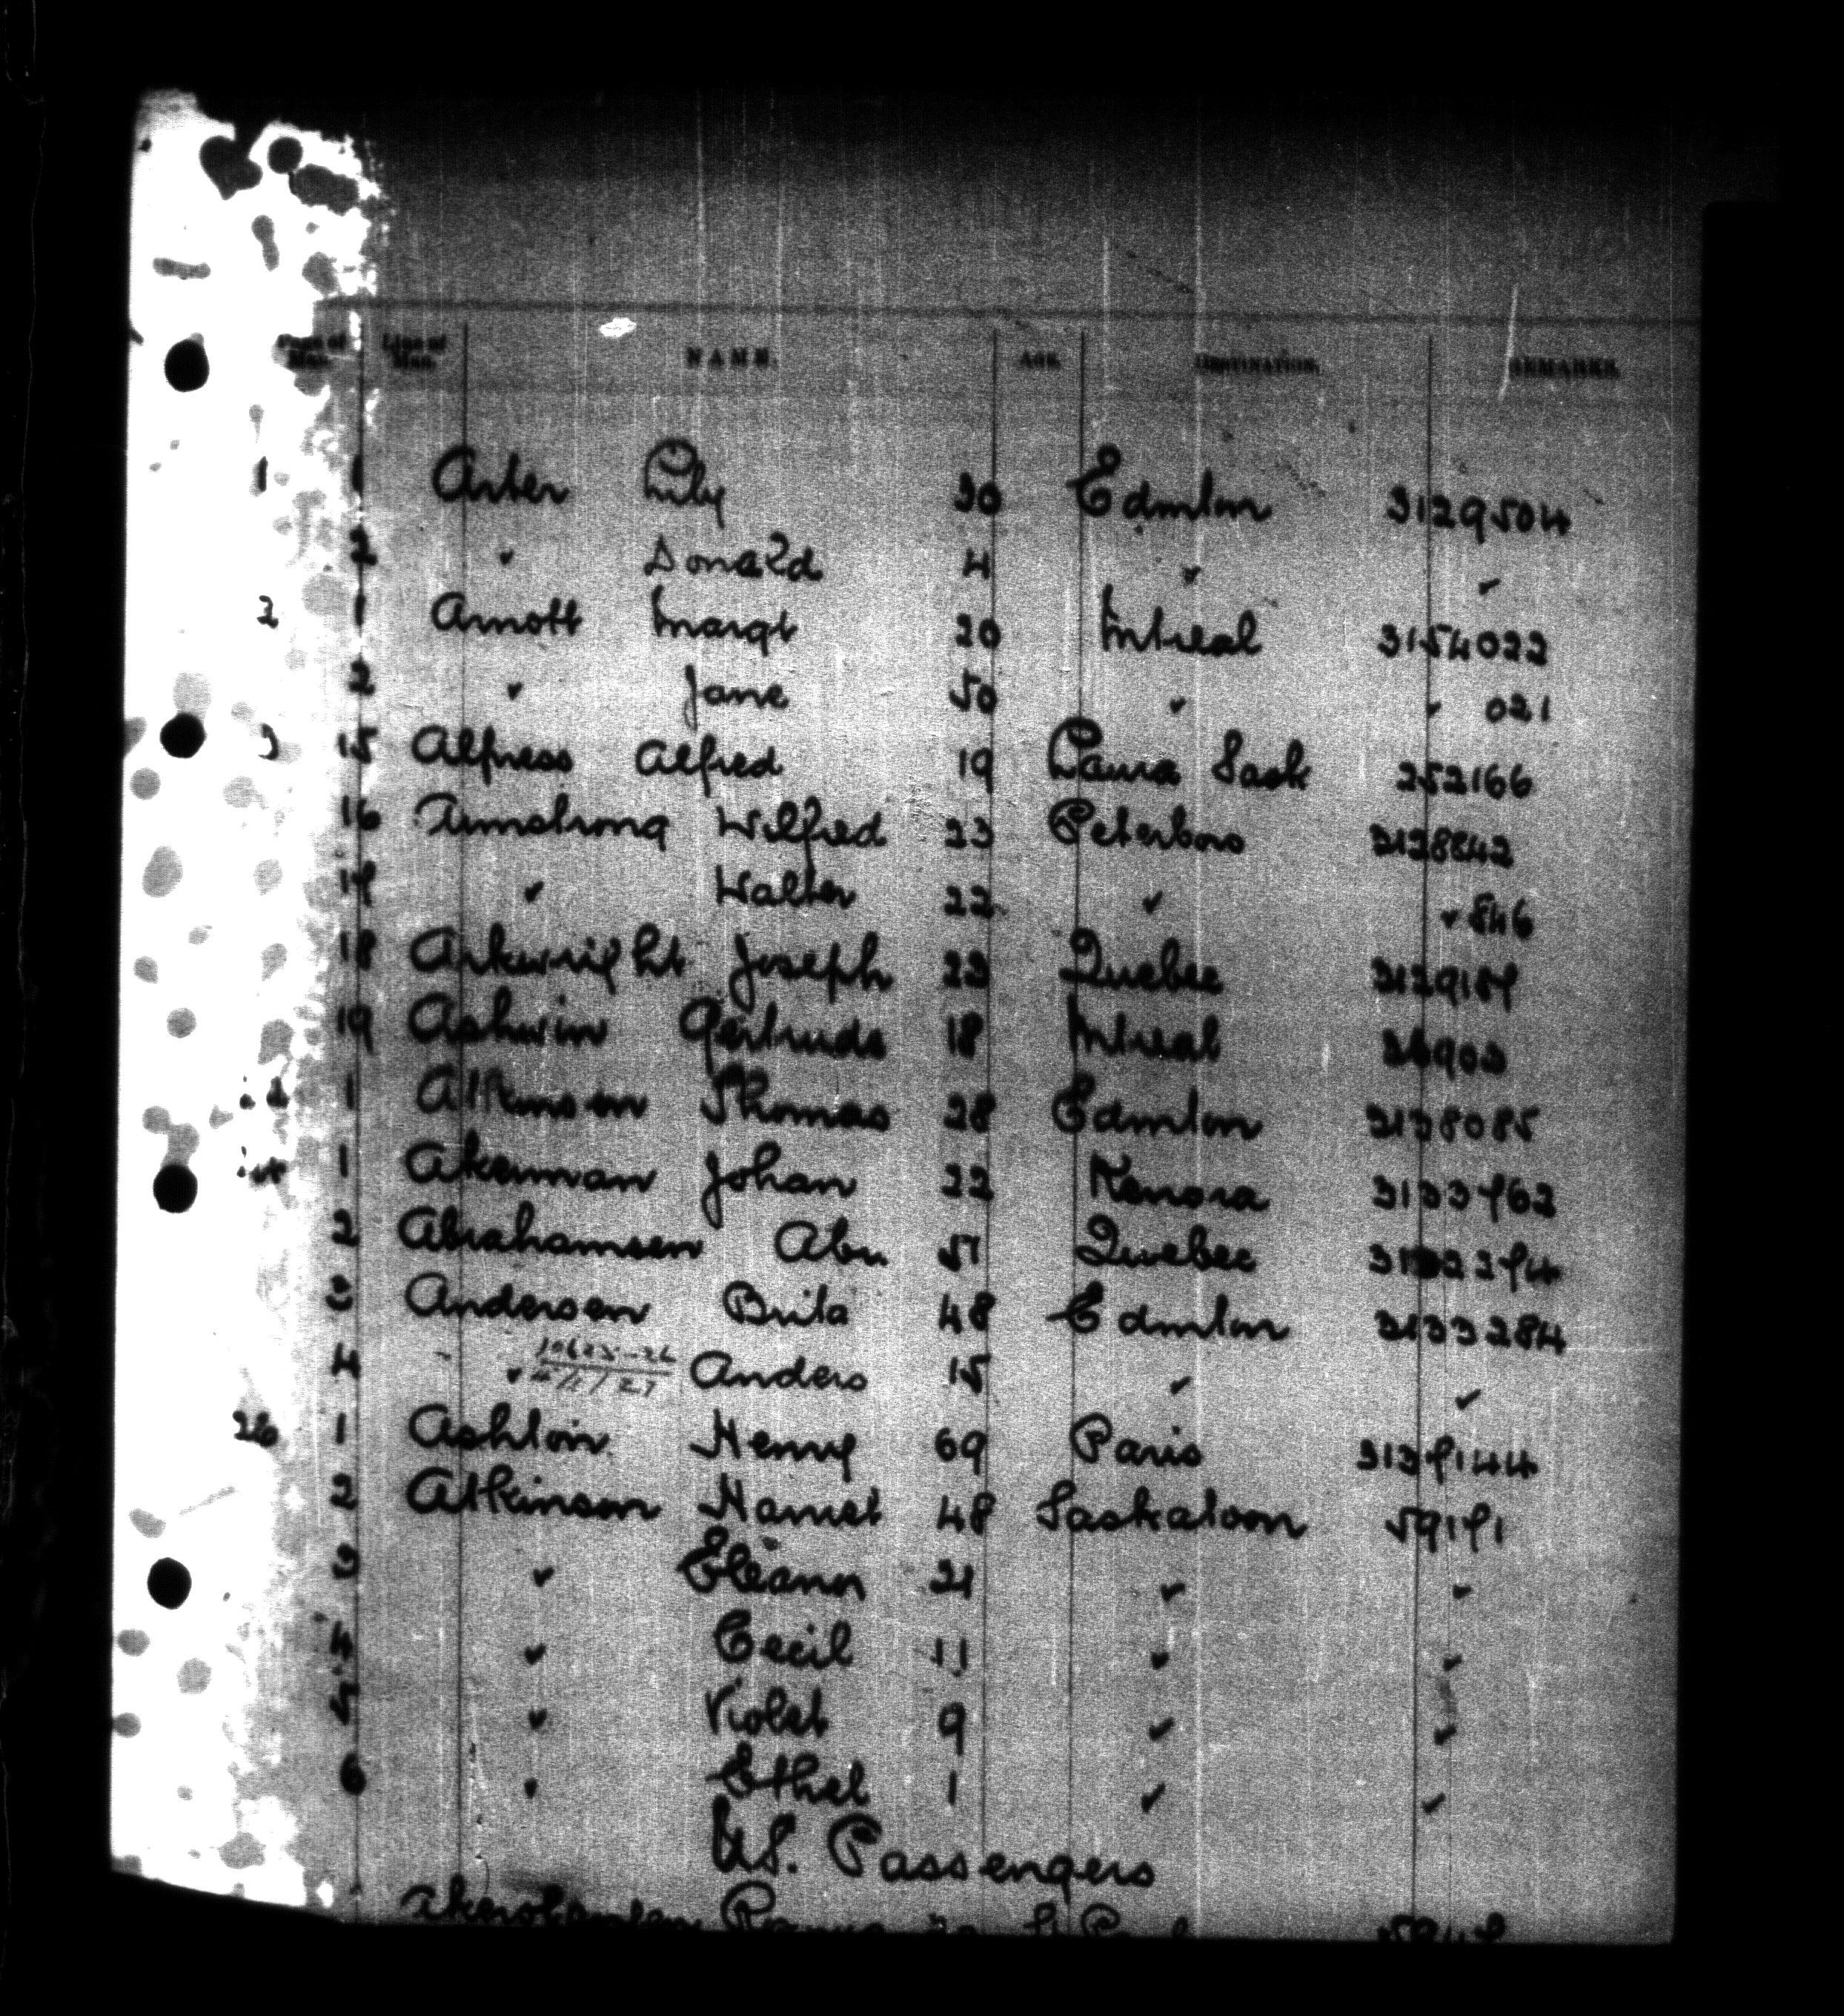 Page of Man. Line of Man. NAME. AGE. DESTINATION. REMARKS.
1 1 Arber Lily 30 Edmton 3129504
2 " Donald 4 " "
2 1 Arnott Margt 20 Mtreal 3154022
2 " Jane 50 " " 021
3 15 Allpress Alfred 19 Laura Sask 252166
16 Armstrong Wilfred 23 Peterboro 3128842
17 " Walter 22 " " 846
18 Arkwright Joseph 23 Quebec 3129187
19 Ashwin Gertrude 18 Mtreal 36903
1 Atkinson Thomas 28 Edmton 3138085
1 Akerman Johan 22 Kenora 3133762
2 Abrahamsen Abr. 51 Quebec
3 Andersen Brita 48 Edmton 3133284
4 " Anders 15 " "
26 1 Ashton Henry 69 Paris 3137144
2 Atkinson Harriet 48 Saskatoon 59171
3 " Eleanor 21 " "
4 " Cecil 11 " "
5 " Violet 9 " "
6 " Ethel 1 " "
US. Passengers